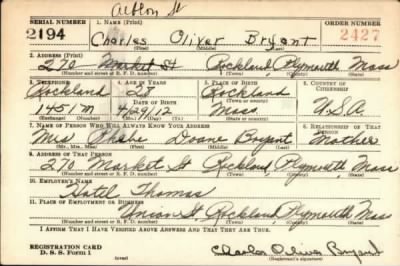 Albion St
SERIAL NUMBER 1. NAME (Print) ORDER NUMBER
2194 Charles Oliver Bryant 2427
(First) (Middle) (Last)
2. ADDRESS (Print)
270 Market St Rockland, Plymouth Mass
(Number and street or R. F. D. number) (Town) (County) (State)
3. TELEPHONE 4. AGE IN YEARS 5. PLACE OF BIRTH 6. COUNTRY OF CITIZENSHIP
Rockland 28 Rockland
DATE OF BIRTH (Town or county)
1451 M 4/29/12 Mass U.S.A.
(Mo.) (Day) (Yr.) (State or country)
7. NAME OF PERSON WHO WILL ALWAYS KNOW YOUR ADDRESS 8. RELATIONSHIP OF THAT PERSON
Doane Bryant Mother
(Mr., Mrs., Miss) (First) (Middle) (Last)
9. ADDRESS OF THAT PERSON
270 Market St Rockland, Plymouth, Mass
(Number and street or R. F. D. number) (Town) (County) (State)
10. EMPLOYER'S NAME
Hotel Thomas
11. PLACE OF EMPLOYMENT OR BUSINESS
Union St, Rockland Plymouth Mass
(Number and street or R. F. D. number) (Town) (County) (State)
I AFFIRM THAT I HAVE VERIFIED ABOVE ANSWERS AND THAT THEY ARE TRUE.
REGISTRATION CARD
D. S. S. Form 1 Charles Oliver Bryant
(over) (Registrant's signature)